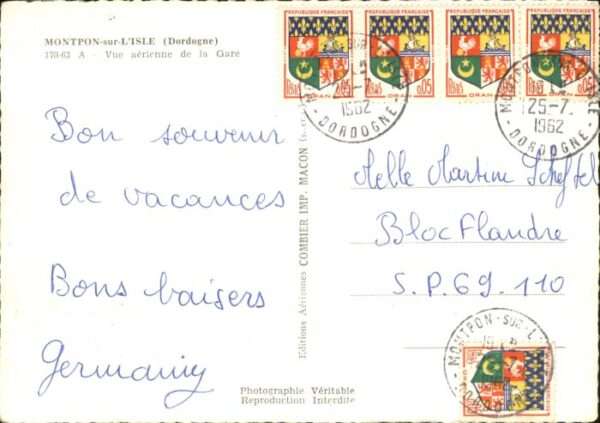 MONTPON-sur-L'ISLE (Dordogne)
170-63 A - Vue aérienne de la Gare
Bon souvenir
de vacances
Bons baisers
Germaniy
Editions Aériennes COMBIER IMP. MACON
Photographie Véritable
Reproduction Interdite
REPUBLIQUE FRANÇAISE
REPUBLIQUE FRANÇAISE
REPUBLIQUE FRANÇAISE
REPUBLIQUE FRANÇAISE
POSTES 0,05
ORAN
0,05
ORAN
0,05
ORAN
0,05
1962
DORDOGNE
MONTPON
25-7
1962
DORDOGNE
Melle Martine
Bloc Flandre
S.P. 69.110
MONTPON-SUR-L